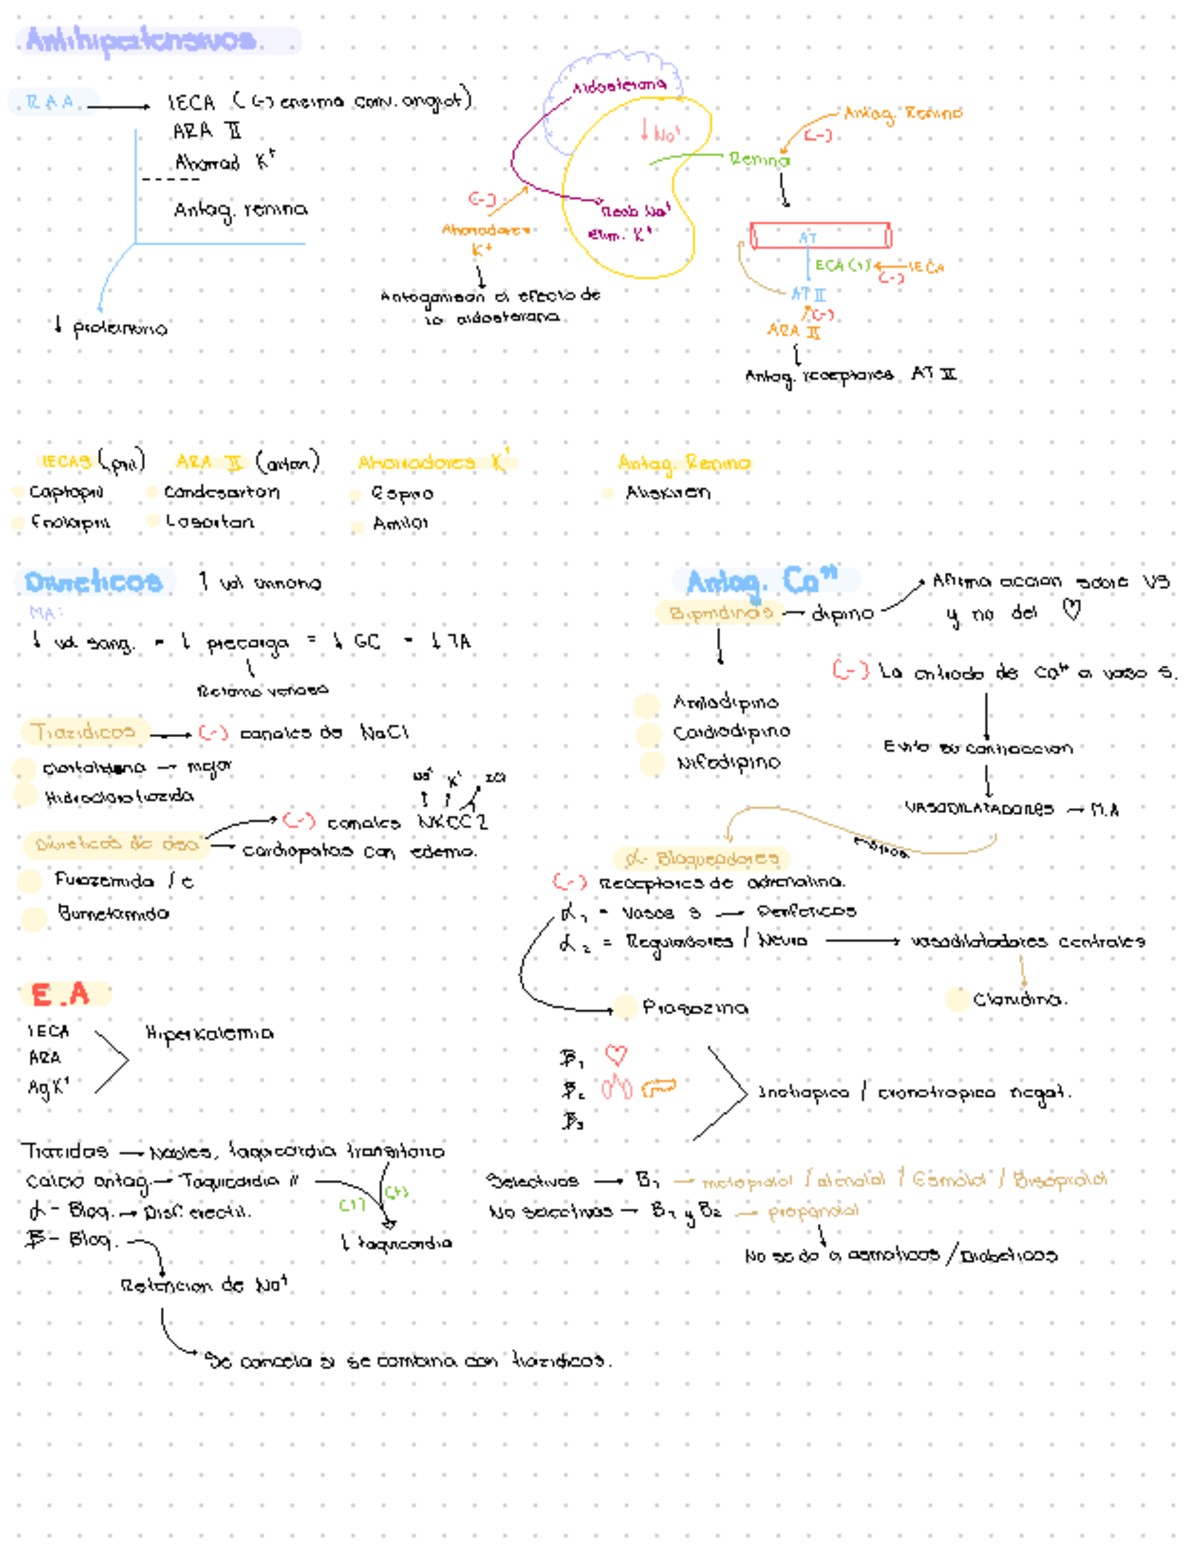 Antihipertensivos
RAA → IECA ( (-) enzima conv. angiot)
ARA II
Ahorrad K⁺
Antag. renina
↓ proteinuria
Aldosterona
↓ Na⁺
Reab Na⁺
elim. K⁺
Renina
Antag. Renina
(-)
(-)
Ahorradores
K⁺
Antagonizan el efecto de
la aldosterona
AT
ECA (+) ← IECA
(-)
AT II
(-)
ARA II
Antag. receptores AT II
IECAS (pril) ARA II (artan) Ahorradores K⁺ Antag. Renina
Captopril Candesartan Espiro Aliskiren
Enalapril Losartan Amilor
Diureticos ↑ vol urinario
MA:
↓ vol sang. = ↓ precarga = ↓ GC = ↓ TA
Retorno venoso
Tiazidicos → (-) canales de NaCl
Clortalidona → mejor
Hidroclorotiazida
Na⁺ K⁺ 2Cl
Diureticos de asa → (-) canales NKCC2
→ cardiopatas con edema.
Furozemida / c
Bumetamida
Antag. Ca⁺⁺
Bipiridinas → dipino → Afirma accion sobre VS
y no del ♡
Amlodipino
Cardiodipino
Nifedipino
(-) La entrada de Ca⁺⁺ a vaso s.
Evita su contraccion
VASODILATADORES → M.A
α- Bloqueadores
(-) Receptores de adrenalina.
α₁ = Vasos S → Perifericos
α₂ = Reguladores / Neuro → vasodilatadores centrales
Prazozina
Clonidina.
B₁ ♡
B₂
B₃
Inotropico / cronotropico negat.
E.A
IECA
ARA
Ag K⁺
Hiperkalemia
Tiazidas → Nauses, taquicardia transitoria
Calcio antag. → Taquicardia //
(+) (+)
α- Bloq. → Disf. erectil.
↓ taquicardia
B- Bloq.
Retencion de Na⁺
Se cancela si se combina con tiazidicos.
Selectivos → B₁ → metoprolol / atenolol / Esmolol / Bisoprolol
No selectivos → B₁ y B₂ → propanolol
No se da a asmaticos / Diabeticos